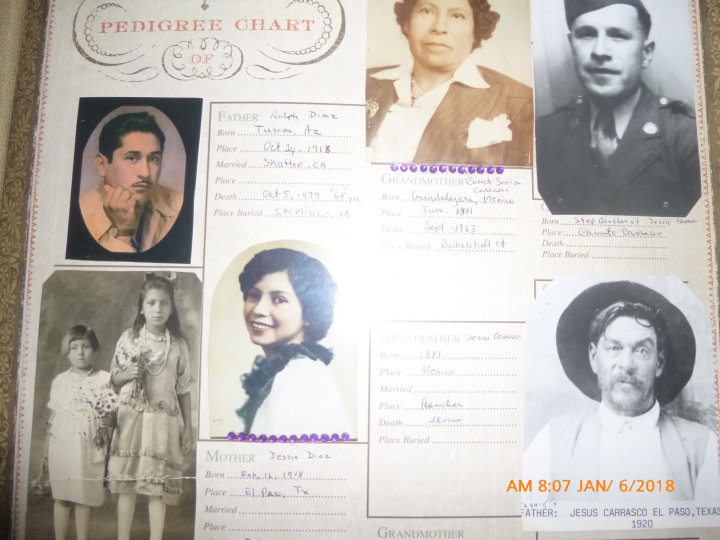 PEDIGREE CHART
OF
FATHER Ralph Diaz
Born Tuscon, Az
Place Oct 24 - 1918
Married Shafter, CA
Place
Death Oct 5, 1979
Place Buried
GRANDMOTHER
Born Guadalajara, Mexico
Place June, 1881
Death Sept - 1963
Place Buried CA
Born Step Brother of Jessie
Place Carrasco
Death
Place Buried
GRANDFATHER Jesus
Born 1881
Place Mexico
Married
Place Rancher
Death
Place Buried
MOTHER Jessie Diaz
Born Feb, 16, 1918
Place El Paso, Tx
Married
Place
GRANDMOTHER
FATHER: JESUS CARRASCO EL PASO,TEXAS
1920
AM 8:07 JAN/ 6/2018